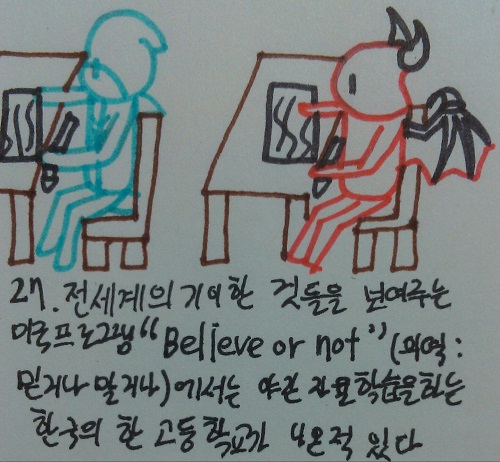 27. 전세계의 기이한 것들을 보여주는
미국프로그램 "Believe or not" (의역:
믿거나 말거나)에서는 야간 자율학습을하는
한국의 한 고등학교가 나온적 있다